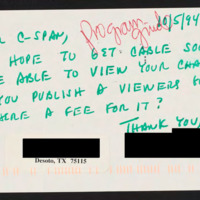 C-SPAN, Program
Guide 10/5/94
HOPE TO GET CABLE SO
ABLE TO VIEW YOUR CHA
YOU PUBLISH A VIEWERS
A FEE FOR IT?
THANK YOU,
Desoto, TX 75115